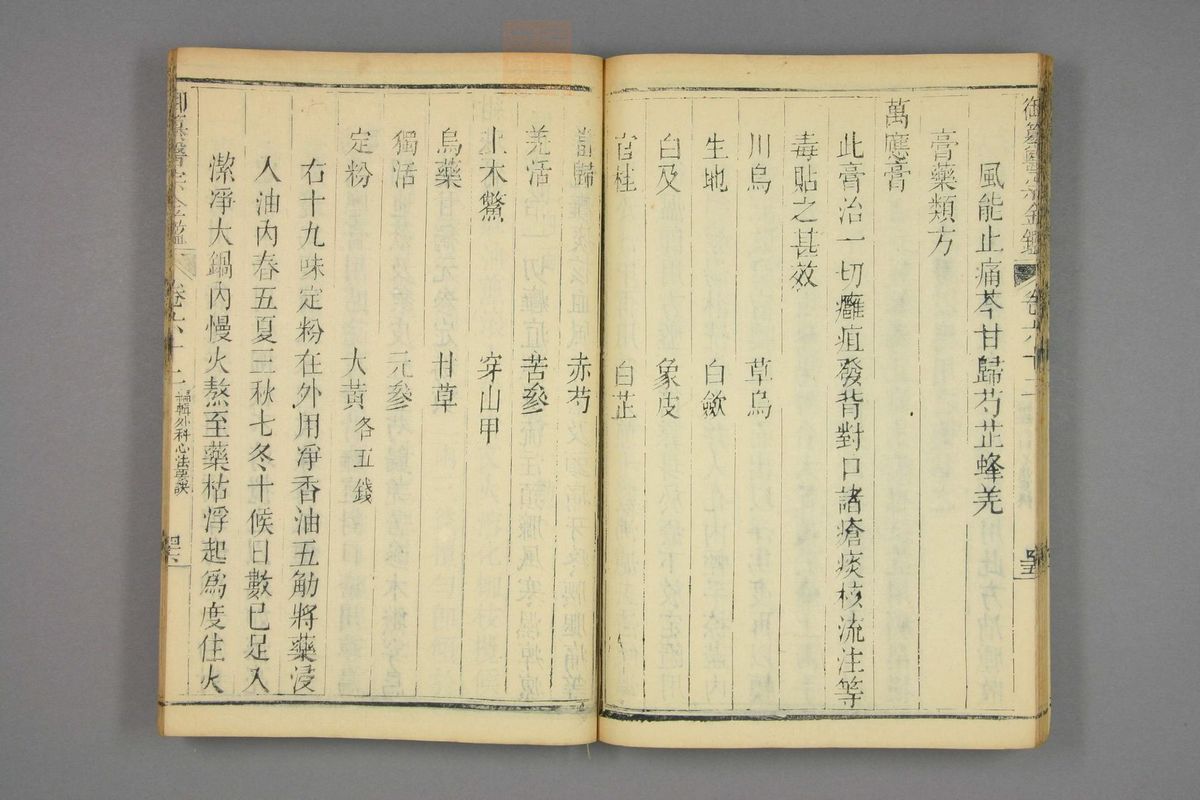 御纂醫宗金鑑 卷六十二
風能止痛芩甘歸芍芷蜂羌
膏藥類方
萬應膏
此膏治一切癰疽發背對口諸瘡痰核流注等
毒貼之甚效
川烏 草烏
生地 白蘞
白及 象皮
官桂 白芷
當歸 赤芍
羌活 苦參
土木鱉 穿山甲
烏藥 甘草
獨活 元參
定粉 大黃各五錢
右十九味定粉在外用凈香油五觔將藥浸
入油內春五夏三秋七冬十候日數已足入
潔淨大鍋內慢火熬至藥枯浮起爲度住火
御纂醫宗金鑑 卷六十二 編輯外科心法要訣